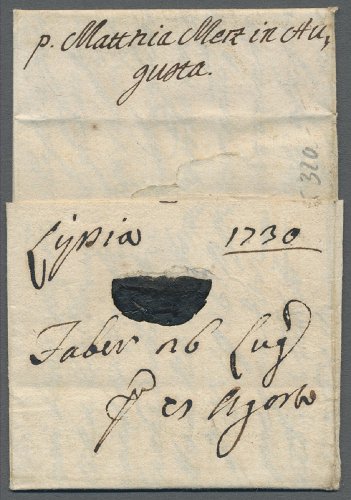 p. Matthia Merz in Au,
gusta.
320.-
Lypsia 1730
Faber 26 Lugᵒ
21 Agosto